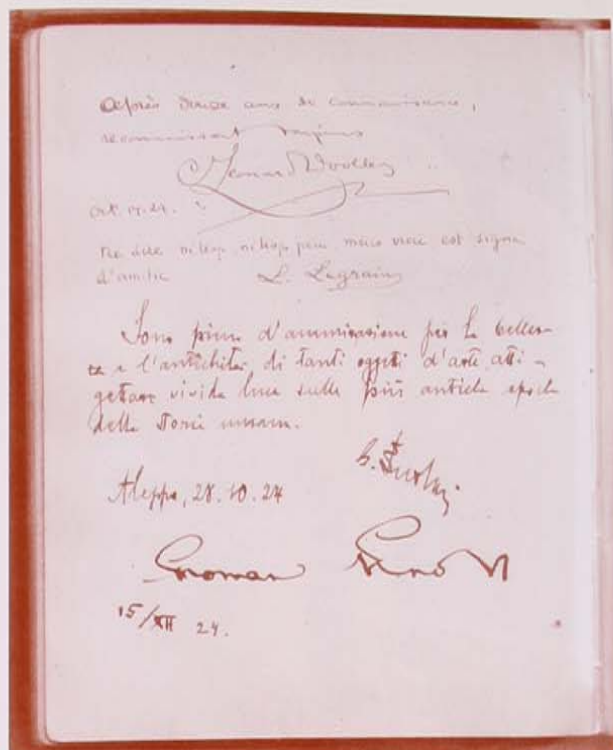 Après douze ans de connaissance,
reconnaissant toujours
Leonard Woolley
Oct. 24.
Ne dire ni trop, ni trop peu mais vrai est signe
d'amitié L. Legrain
Sono pieno d'ammirazione per la bellez-
za e l'antichità di tanti oggetti d'arte atti a
gettare vivida luce sulle più antiche epoche
della storia umana.
Aleppo, 28.10.24
15/XII 24.